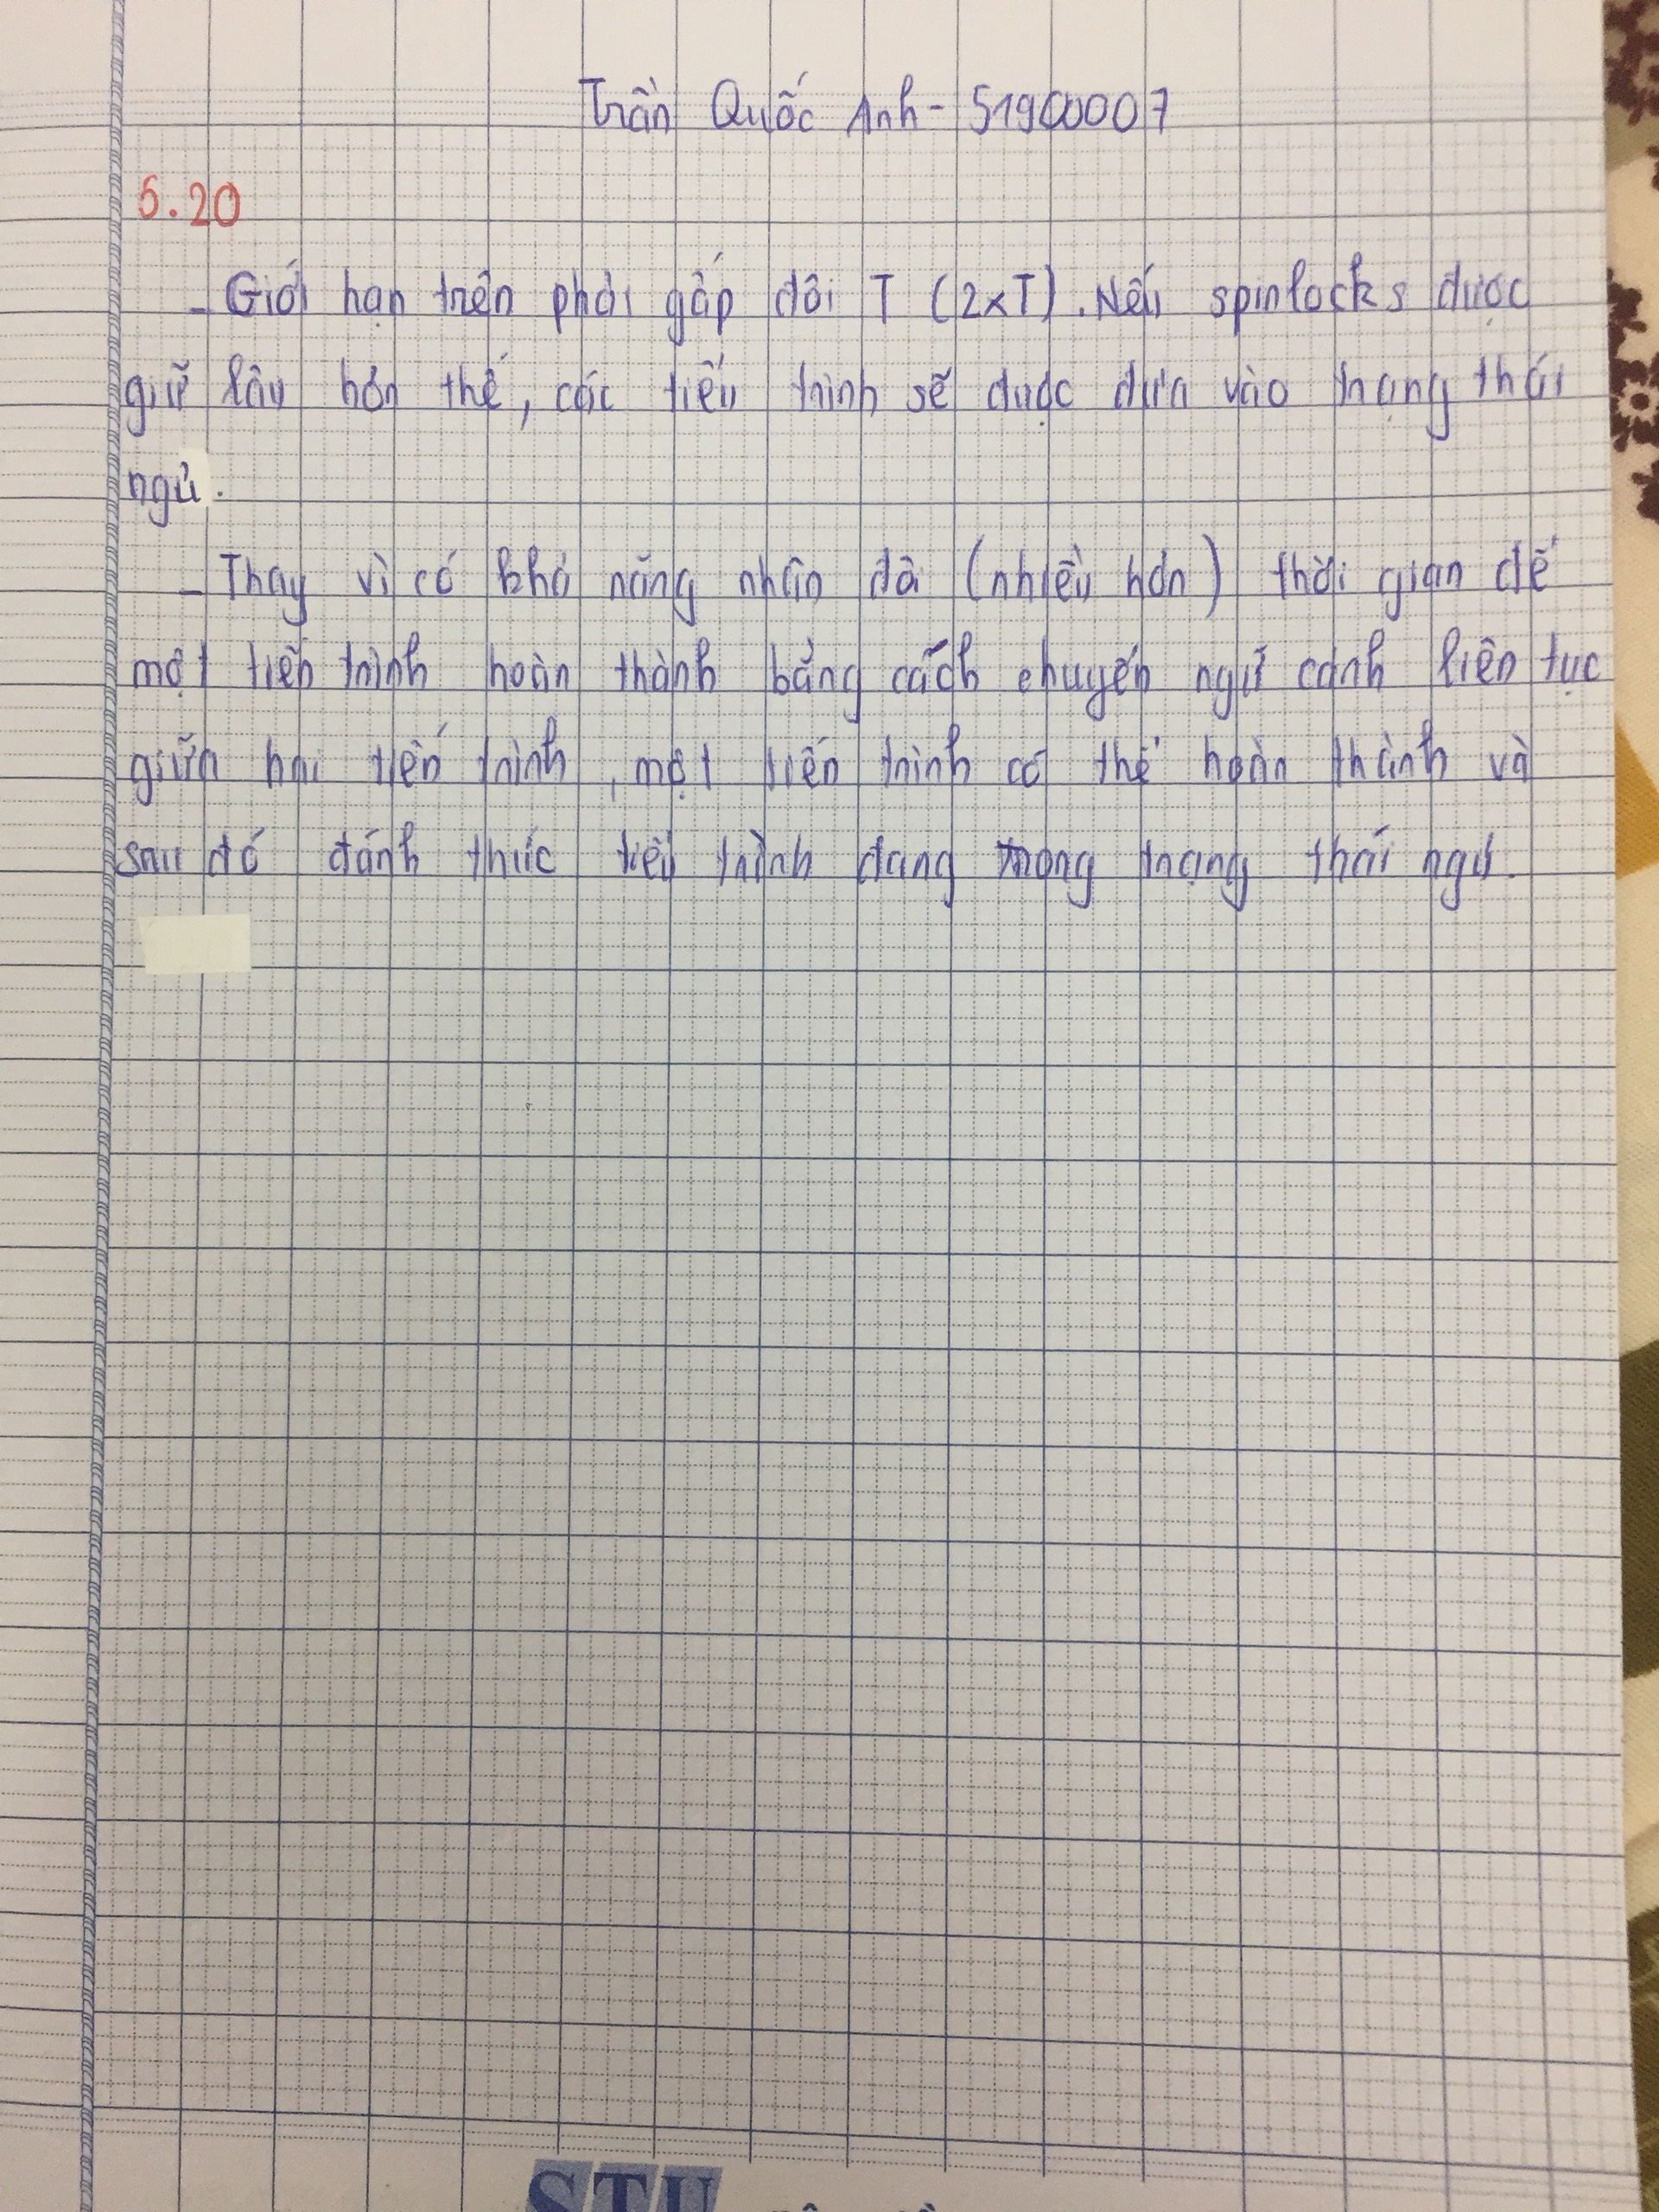 Trần Quốc Anh - 51900007
5.20
- Giới hạn trên phải gấp đôi T (2xT). Nếu spinlocks được
giữ lâu hơn thế, các tiến trình sẽ được đưa vào trạng thái
ngủ.
- Thay vì có khả năng nhân đôi (nhiều hơn) thời gian để
một tiến trình hoàn thành bằng cách chuyển ngữ cảnh liên tục
giữa hai tiến trình, một tiến trình có thể hoàn thành và
sau đó đánh thức tiến trình đang trong trạng thái ngủ.
STU